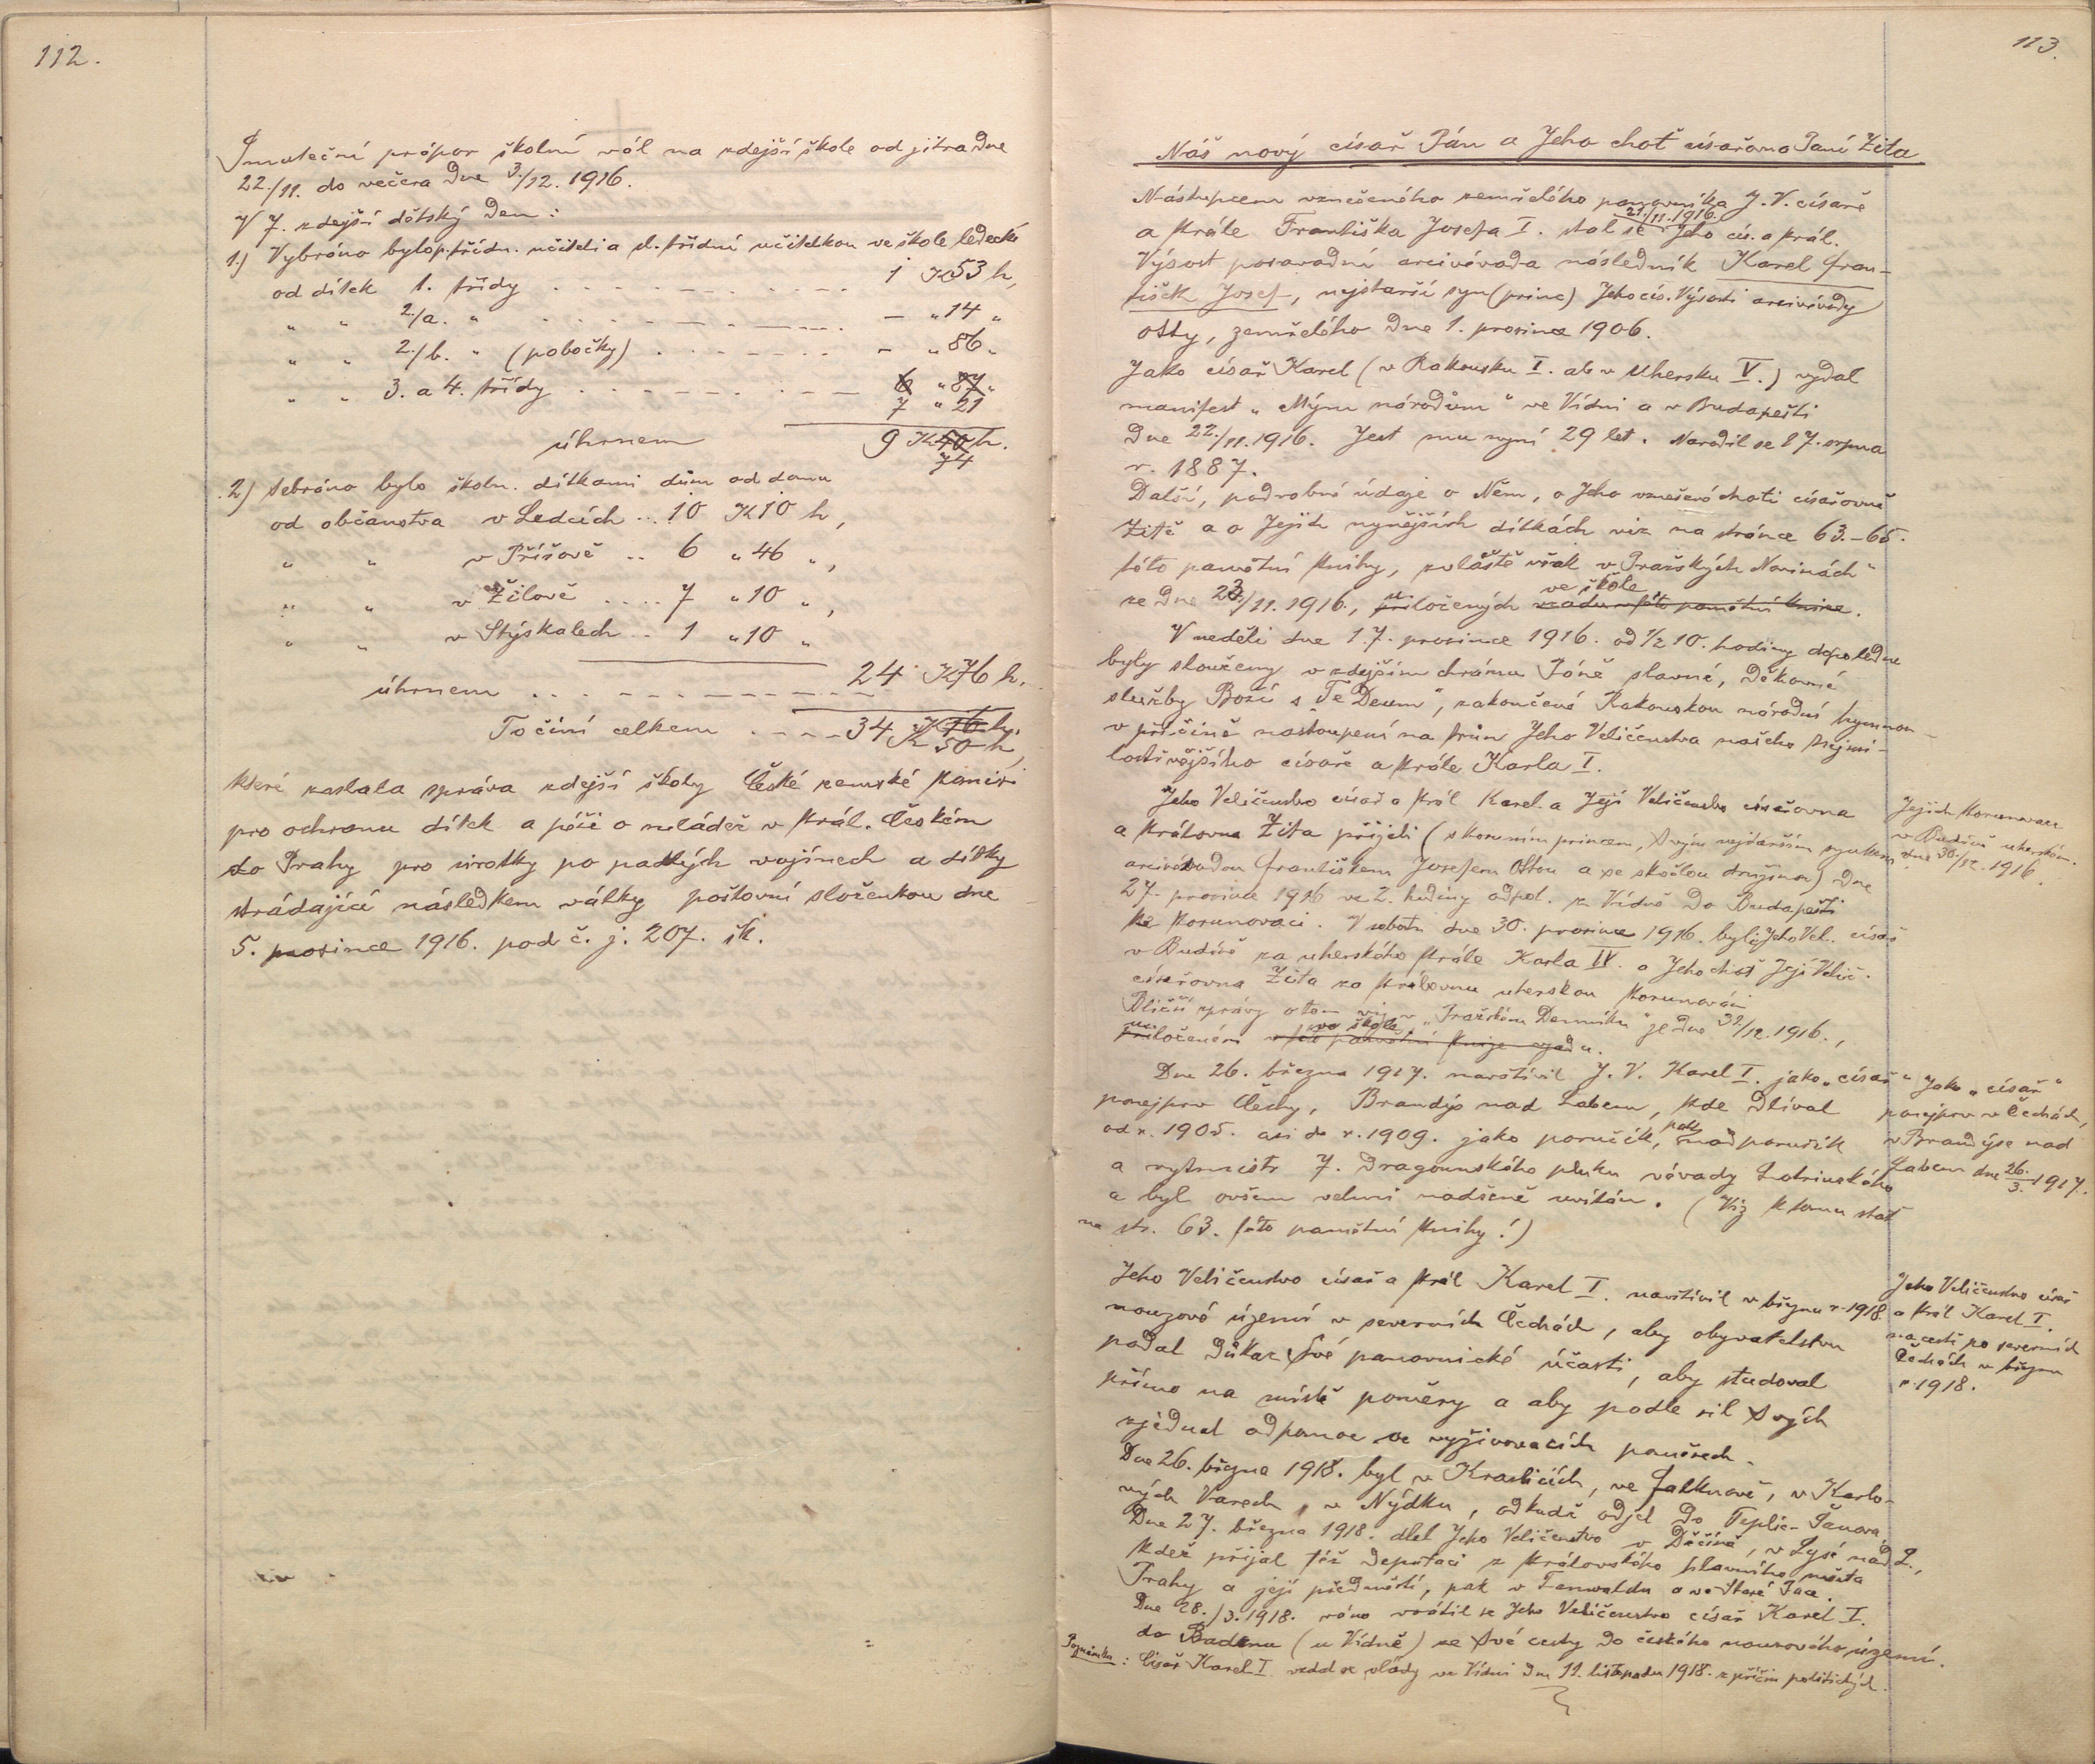 112.
Smuteční prápor školní vál na zdejší škole od jitra dne
22./11. do večera dne 3./12. 1916.
V 7. zdejší dětský den:
1.) Vybráno bylo p. třídn. učiteli a sl. třídní učitelkou ve škole ledecké
od dítek 1. třídy . . . . . . . . . . 1 K 53 h,
„ „ 2./a. „ . . . . . . . . . . — „ 14 „
„ „ 2./b. „ (pobočky) . . . . . . . — „ 86 „
„ „ 3. a 4. třídy . . . . . . . . . 6 „ 87 „
7 „ 21
úhrnem 9 K 40 h.
74
2.) Sebráno bylo školn. dítkami dům od domu
od občanstva v Ledcích .. 10 K 10 h,
„ „ v Příšově .. 6 „ 46 „,
„ „ v Žilově .... 7 „ 10 „,
„ „ v Stýskalech .. 1 „ 10 „
úhrnem . . . . . . . . . . 24 K 76 h.
To činí celkem . . . . 34 K 16 h.
K 50 h,
které zaslala správa zdejší školy České zemské komisi
pro ochranu dítek a péči o mládež v král. Českém
do Prahy pro sirotky po padlých vojínech a dítky
strádající následkem války poštovní složenkou dne
5. prosince 1916. pod č. j. 207. šk.
113.
Náš nový císař Pán a Jeho choť císařovna Paní Zita
Nástupcem vznešeného zemřelého panovníka J. V. císaře
21./11. 1916.
a krále Františka Josefa I. stal se Jeho cís. a král.
Výsost posavadní arcivévoda následník Karel Fran-
tišek Josef, nejstarší syn (princ) Jeho cís. Výsosti arcivévody
Otty, zemřelého dne 1. prosince 1906.
Jako císař Karel (v Rakousku I. ale v Uhersku IV.) vydal
manifest „Mým národům“ ve Vídni a v Budapešti
dne 22./11. 1916. Jest mu nyní 29 let. Narodil se 17. srpna
r. 1887.
Další, podrobné údaje o Něm, o Jeho vznešené choti císařovně
Zitě a o Jejich nynějších dítkách viz na stránce 63.–65.
této pamětní knihy, zvláště však v „Pražských Novinách“
ve škole
ze dne 23./11. 1916., uložených vzadu v této pamětní knize.
V neděli dne 17. prosince 1916. od ½ 10. hodiny dopoledne
byly slouženy v zdejším chrámu Páně slavné, děkovné
služby Boží s „Te Deum“, zakončené Rakouskou národní hymnou
v příčině nastoupení na trůn Jeho Veličenstva našeho Nejmi-
lostivějšího císaře a krále Karla I.
Jeho Veličenstvo císař a král Karel a Její Veličenstvo císařovna
a královna Zita přijeli (s korunním princem, Svým nejstarším synkem
arcivévodou Františkem Josefem Ottou a se skvělou družinou) dne
27. prosince 1916 ve 2. hodiny odpol. z Vídně do Budapešti
ke korunovaci. V sobotu dne 30. prosince 1916. byli Jeho Vel. císař
v Budíně za uherského krále Karla IV. a Jeho choť Její Velič.
císařovna Zita za královnu uherskou korunováni.
Bližší zprávy o tom viz v „Pražském Denníku“ ze dne 31/12. 1916.,
u ve škole.
přiloženém v této pamětní knize vzadu.
Dne 26. března 1917. navštívil J. V. Karel I. jako „císař“
ponejprv Čechy, Brandýs nad Labem, kde dlíval
od r. 1905. asi do r. 1909. jako poručík, pak nadporučík
a rytmistr 7. dragounského pluku vévody Lotrinského
a byl ovšem velmi nadšeně uvítán. (Viz k tomu stať
na str. 63. této pamětní knihy!)
Jeho Veličenstvo císař a král Karel I. navštívil v březnu r. 1918.
nouzové území v severních Čechách, aby obyvatelstvu
podal důkaz Své panovnické účasti, aby studoval
přímo na místě poměry a aby podle sil Svých
zjednal odpomoc ve vyživovacích poměrech.
Dne 26. března 1918. byl v Kraslicích, ve Falknově, v Karlo-
vých Varech, v Nýdku, odkudž odjel do Teplic-Šanova.
Dne 27. března 1918. dlel Jeho Veličenstvo v Děčíně, v Lysé nad L.,
kdež přijal též deputaci z královského hlavního města
Prahy a její předměstí, pak v Tanvaldu a ve Staré Pace.
Dne 28./3. 1918. ráno vrátil se Jeho Veličenstvo císař Karel I.
do Badenu (u Vídně) ze Své cesty do českého nouzového území.
Poznámka: Císař Karel I. vzdal se vlády ve Vídni dne 11. listopadu 1918. z příčin politických.
Jejich korunovace
v Budíně uherském.
dne 30./12. 1916.
Jako „císař“
ponejprv v Čechách,
v Brandýse nad
Labem dne 26./3. 1917.
Jeho Veličenstvo císař
a král Karel I.
na cestě po severních
Čechách v březnu
r. 1918.